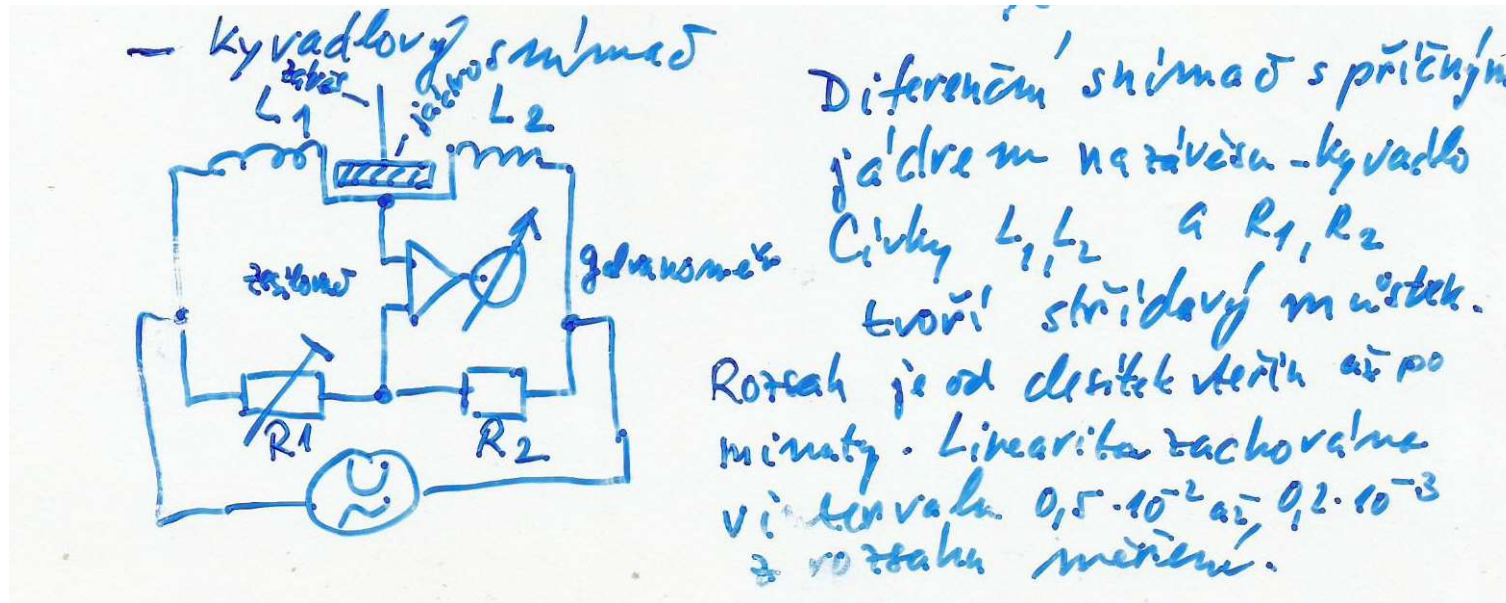 – Kyvadlový snímač
závěs
jádro
L1
L2
zesilovač
galvanoměr
R1
R2
U
~
Diferenční snímač s příčným
jádrem na závěsu – kyvadlo
Cívky L1, L2 a R1, R2
tvoří střídavý můstek.
Rozsah je od desítek vteřin až po
minuty. Linearita zachována
v intervalu 0,5·10⁻² až 0,2·10⁻³
z rozsahu měření.